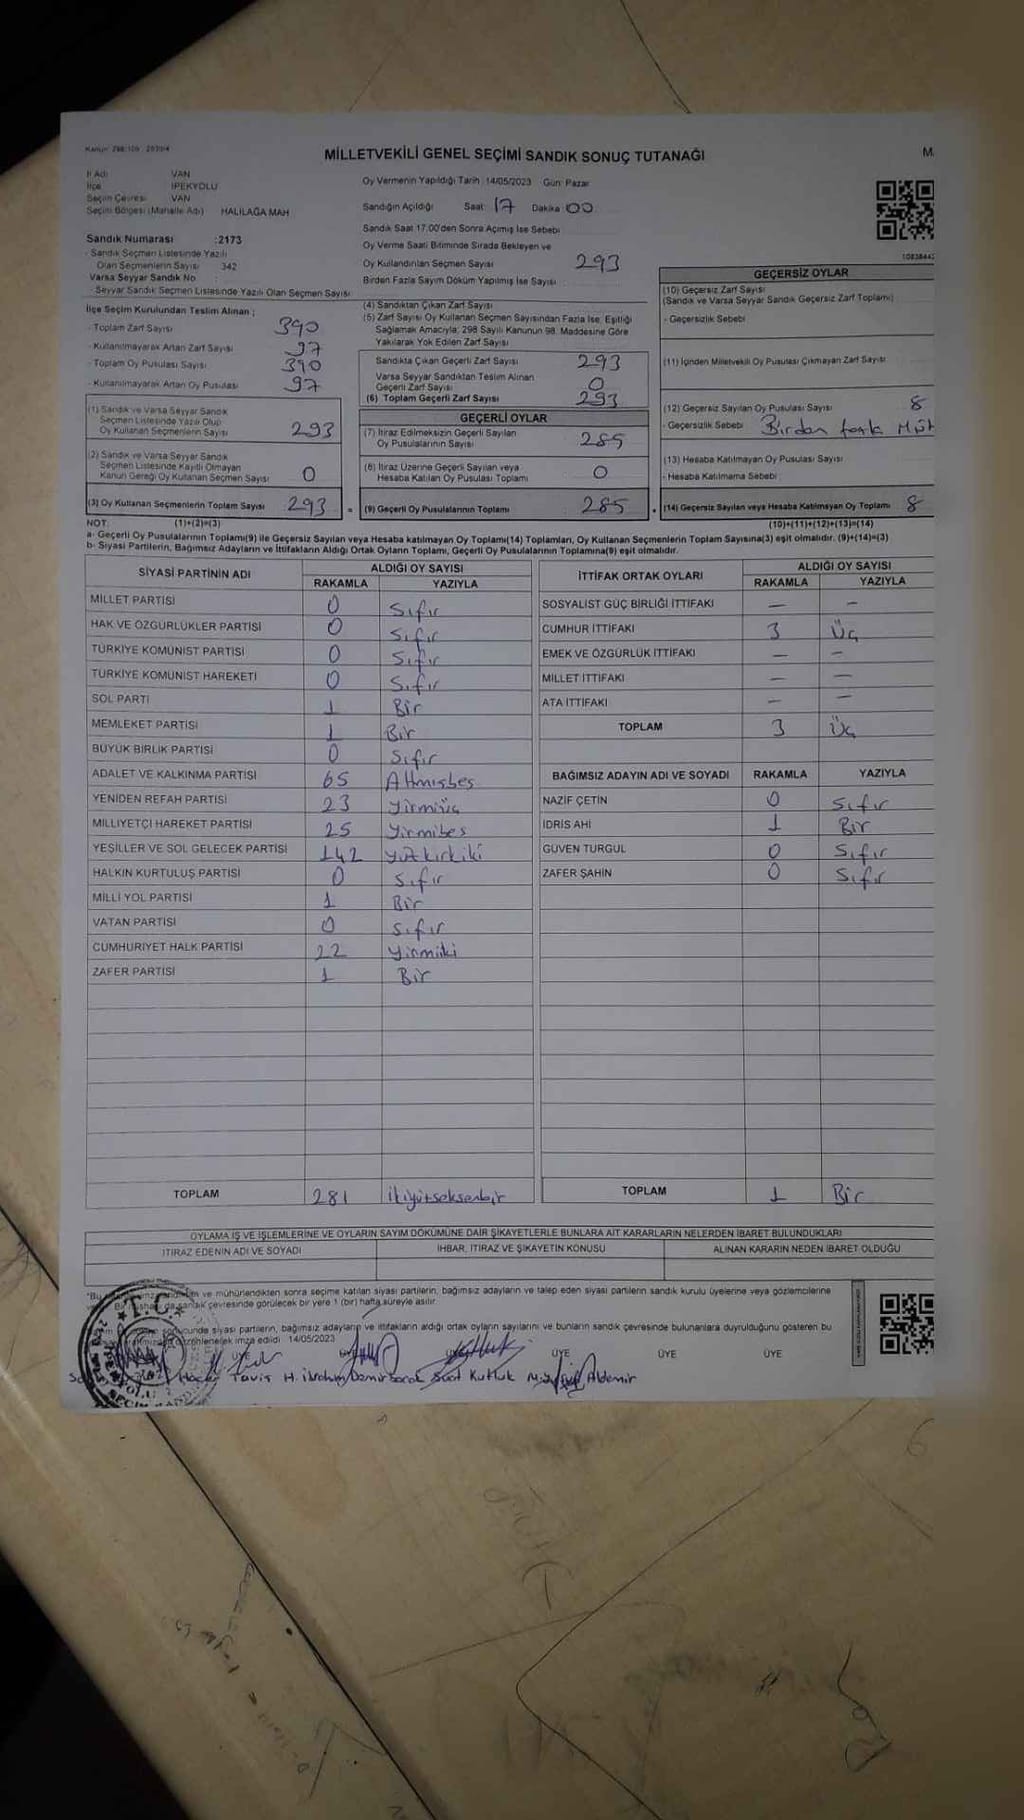 MİLLETVEKİLİ GENEL SEÇİMİ SANDIK SONUÇ TUTANAĞI
İl Adı VAN
İlçe İPEKYOLU
Seçim Çevresi VAN
Seçim Bölgesi (Mahalle Adı) HALİLAĞA MAH
Sandık Numarası :2173
- Sandık Seçmen Listesinde Yazılı
Olan Seçmenlerin Sayısı 342
Varsa Seyyar Sandık No
- Seyyar Sandık Seçmen Listesinde Yazılı Olan Seçmen Sayısı
İlçe Seçim Kurulundan Teslim Alınan ;
- Toplam Zarf Sayısı 390
- Kullanılmayarak Artan Zarf Sayısı 97
- Toplam Oy Pusulası Sayısı 390
- Kullanılmayarak Artan Oy Pusulası 97
(1) Sandık ve Varsa Seyyar Sandık
Seçmen Listesinde Yazılı Olup
Oy Kullanan Seçmenlerin Sayısı 293
(2) Sandık ve Varsa Seyyar Sandık
Seçmen Listesinde Kayıtlı Olmayan
Kanun Gereği Oy Kullanan Seçmen Sayısı 0
(3) Oy Kullanan Seçmenlerin Toplam Sayısı 293
Oy Vermenin Yapıldığı Tarih :14/05/2023 Gün: Pazar
Sandığın Açıldığı Saat: 17 Dakika: 00
Sandık Saat 17.00'den Sonra Açılmış İse Sebebi
Oy Verme Saati Bitiminde Sırada Bekleyen ve
Oy Kullandırılan Seçmen Sayısı 293
Birden Fazla Sayım Döküm Yapılmış İse Sayısı
(4) Sandıktan Çıkan Zarf Sayısı
(5) Zarf Sayısı Oy Kullanan Seçmen Sayısından Fazla İse; Eşitliği
Sağlamak Amacıyla; 298 Sayılı Kanunun 98. Maddesine Göre
Yakılarak Yok Edilen Zarf Sayısı
Sandıkta Çıkan Geçerli Zarf Sayısı 293
Varsa Seyyar Sandıktan Teslim Alınan
Geçerli Zarf Sayısı 0
(6) Toplam Geçerli Zarf Sayısı 293
GEÇERLİ OYLAR
(7) İtiraz Edilmeksizin Geçerli Sayılan
Oy Pusulalarının Sayısı 285
(8) İtiraz Üzerine Geçerli Sayılan veya
Hesaba Katılan Oy Pusulası Toplamı 0
(9) Geçerli Oy Pusulalarının Toplamı 285
GEÇERSİZ OYLAR
(10) Geçersiz Zarf Sayısı
(Sandık ve Varsa Seyyar Sandık Geçersiz Zarf Toplamı)
- Geçersizlik Sebebi
(11) İçinden Milletvekili Oy Pusulası Çıkmayan Zarf Sayısı
(12) Geçersiz Sayılan Oy Pusulası Sayısı 8
- Geçersizlik Sebebi Birden fazla Müh
(13) Hesaba Katılmayan Oy Pusulası Sayısı
- Hesaba Katılmama Sebebi
(14) Geçersiz Sayılan veya Hesaba Katılmayan Oy Toplamı 8
NOT: (1)+(2)=(3) (10)+(11)+(12)+(13)=(14)
a- Geçerli Oy Pusulalarının Toplamı(9) ile Geçersiz Sayılan veya Hesaba katılmayan Oy Toplamı(14) Toplamları, Oy Kullanan Seçmenlerin Toplam Sayısına(3) eşit olmalıdır. (9)+(14)=(3)
b- Siyasi Partilerin, Bağımsız Adayların ve İttifakların Aldığı Ortak Oyların Toplamı, Geçerli Oy Pusulalarının Toplamına(9) eşit olmalıdır.
SİYASİ PARTİNİN ADI ALDIĞI OY SAYISI
RAKAMLA YAZIYLA
MİLLET PARTİSİ 0 Sıfır
HAK VE ÖZGÜRLÜKLER PARTİSİ 0 Sıfır
TÜRKİYE KOMÜNİST PARTİSİ 0 Sıfır
TÜRKİYE KOMÜNİST HAREKETİ 0 Sıfır
SOL PARTİ 1 Bir
MEMLEKET PARTİSİ 1 Bir
BÜYÜK BİRLİK PARTİSİ 0 Sıfır
ADALET VE KALKINMA PARTİSİ 65 Altmışbeş
YENİDEN REFAH PARTİSİ 23 Yirmiüç
MİLLİYETÇİ HAREKET PARTİSİ 25 Yirmibeş
YEŞİLLER VE SOL GELECEK PARTİSİ 142 Yüzkırkiki
HALKIN KURTULUŞ PARTİSİ 0 Sıfır
MİLLİ YOL PARTİSİ 1 Bir
VATAN PARTİSİ 0 Sıfır
CUMHURİYET HALK PARTİSİ 22 Yirmiiki
ZAFER PARTİSİ 1 Bir
TOPLAM 281 ikiyüzseksenbir
İTTİFAK ORTAK OYLARI ALDIĞI OY SAYISI
RAKAMLA YAZIYLA
SOSYALİST GÜÇ BİRLİĞİ İTTİFAKI — —
CUMHUR İTTİFAKI 3 Üç
EMEK VE ÖZGÜRLÜK İTTİFAKI — —
MİLLET İTTİFAKI — —
ATA İTTİFAKI — —
TOPLAM 3 Üç
BAĞIMSIZ ADAYIN ADI VE SOYADI RAKAMLA YAZIYLA
NAZİF ÇETİN 0 Sıfır
İDRİS AHİ 1 Bir
GÜVEN TURGUL 0 Sıfır
ZAFER ŞAHİN 0 Sıfır
TOPLAM 1 Bir
OYLAMA İŞ VE İŞLEMLERİNE VE OYLARIN SAYIM DÖKÜMÜNE DAİR ŞİKAYETLERLE BUNLARA AİT KARARLARIN NELERDEN İBARET BULUNDUKLARI
İTİRAZ EDENİN ADI VE SOYADI İHBAR, İTİRAZ VE ŞİKAYETİN KONUSU ALINAN KARARIN NEDEN İBARET OLDUĞU
ve mühürlendikten sonra seçime katılan siyasi partilerin, bağımsız adayların ve talep eden siyasi partilerin sandık kurulu üyelerine veya gözlemcilerine
sandık çevresinde görülecek bir yere 1 (bir) hafta süreyle asılır.
siyasi partilerin, bağımsız adayların ve ittifakların aldığı ortak oyların sayılarını ve bunların sandık çevresinde bulunanlara duyrulduğunu gösteren bu
imza edildi 14/05/2023
ÜYE ÜYE ÜYE ÜYE ÜYE ÜYE
H. İbrahim Demir Suat Kutluk Aldemir
T.C.